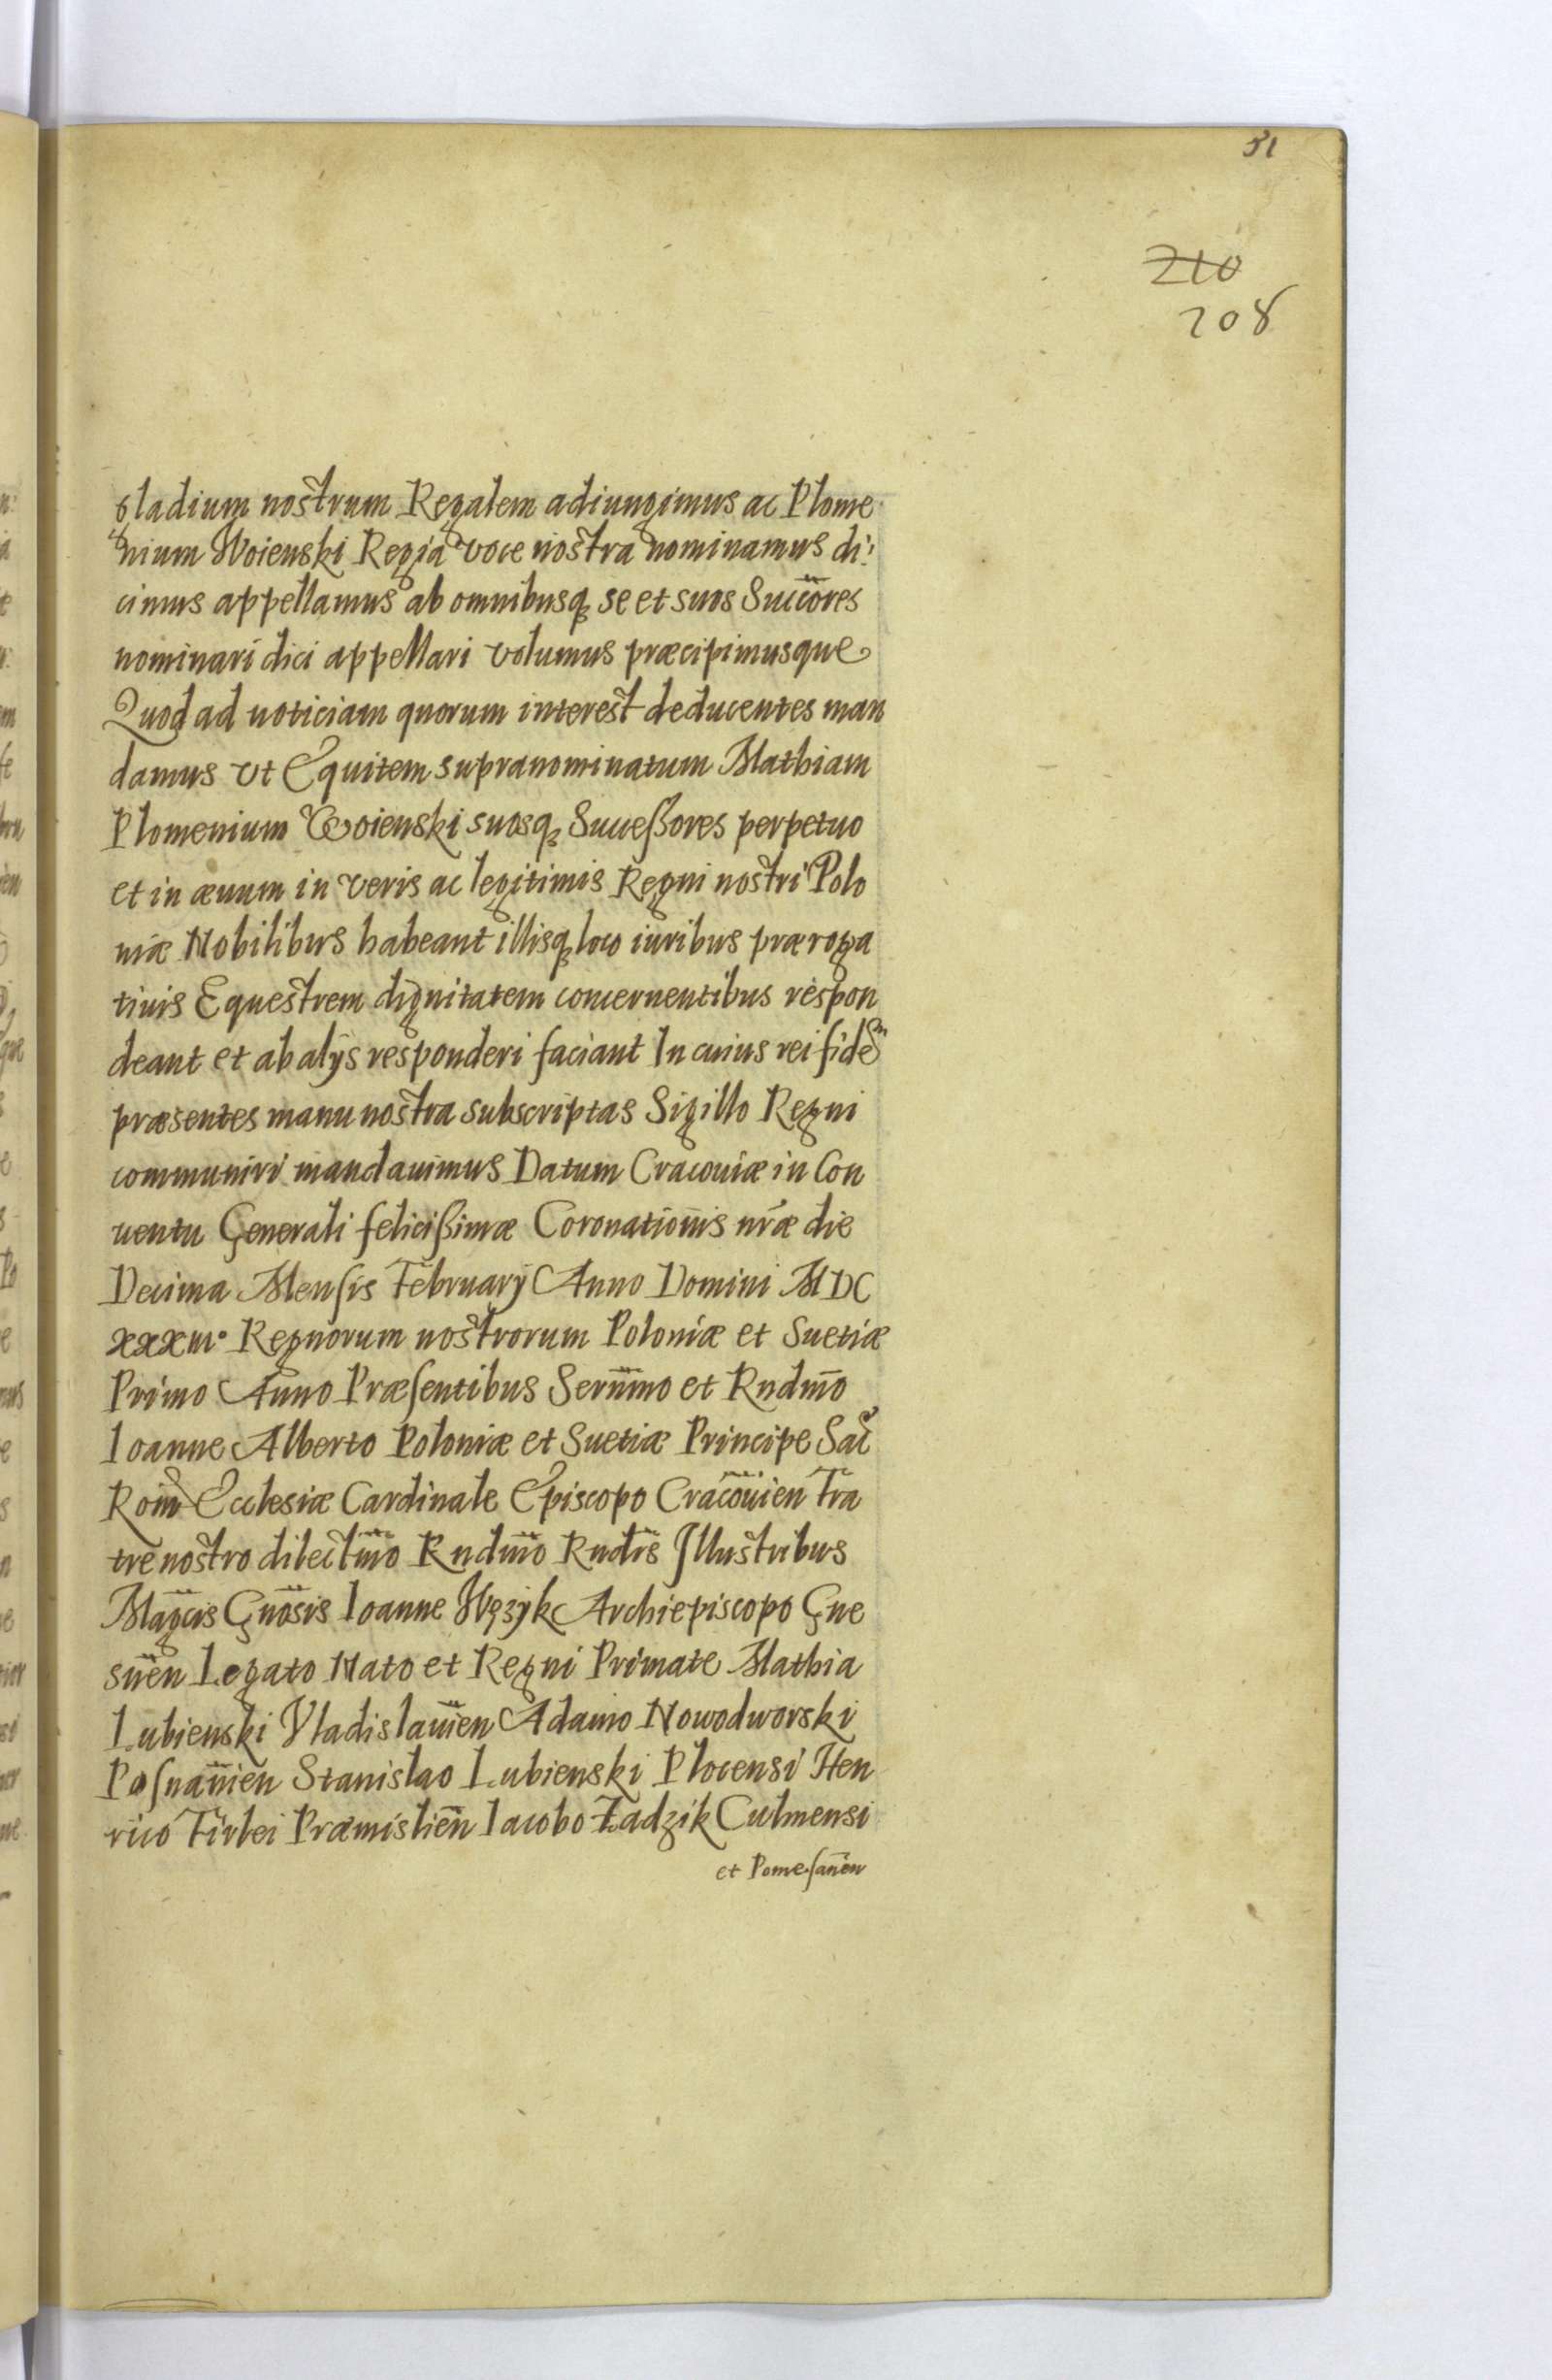 51
210
208
gladium nostrum Regalem adiungimus ac Plome
nium Woienski Regia voce nostra nominamus di:
cimus appellamus ab omnibusq se et suos Succōres
nominari dici appellari volumus præcipimusque
Quod ad noticiam quorum interest deducentes man
damus vt Equitem supranominatum Mathiam
Plomenium Woienski suosq Succeßores perpetuo
et in æuum in veris ac legitimis Regni nostri Polo
niæ Nobilibus habeant illisq loco iuribus præroga
tiuis Equestrem dignitatem concernentibus respon
deant et ab alijs responderi faciant In cuius rei fidem
præsentes manu nostra subscriptas Sigillo Regni
communiri mandauimus Datum Cracouiæ in Con
uentu Generali felicißimæ Coronationis nr̃æ die
Decima Mensis February Anno Domini MDC
xxxiii° Regnorum nostrorum Poloniæ et Suetiæ
Primo Anno Præsentibus Sern̄mo et Rndm̄o
Ioanne Alberto Poloniæ et Suetiæ Principe Sac̃
Rom̃ Ecclesiæ Cardinale Episcopo Cracōuien Fra
tre nostro dilectm̄o Rndm̄o Rndīs Illustribus
Magcīs Gnōsis Ioanne Wężyk Archiepiscopo Gne
snēn Legato Nato et Regni Primate Mathia
Lubienski Vladislauīen Adamo Nowodworski
Posnanīen Stanislao Lubienski Plocensi Hen
rico Firlei Præmisliēn Iacobo Zadzik Culmensi
et Pomesanēn